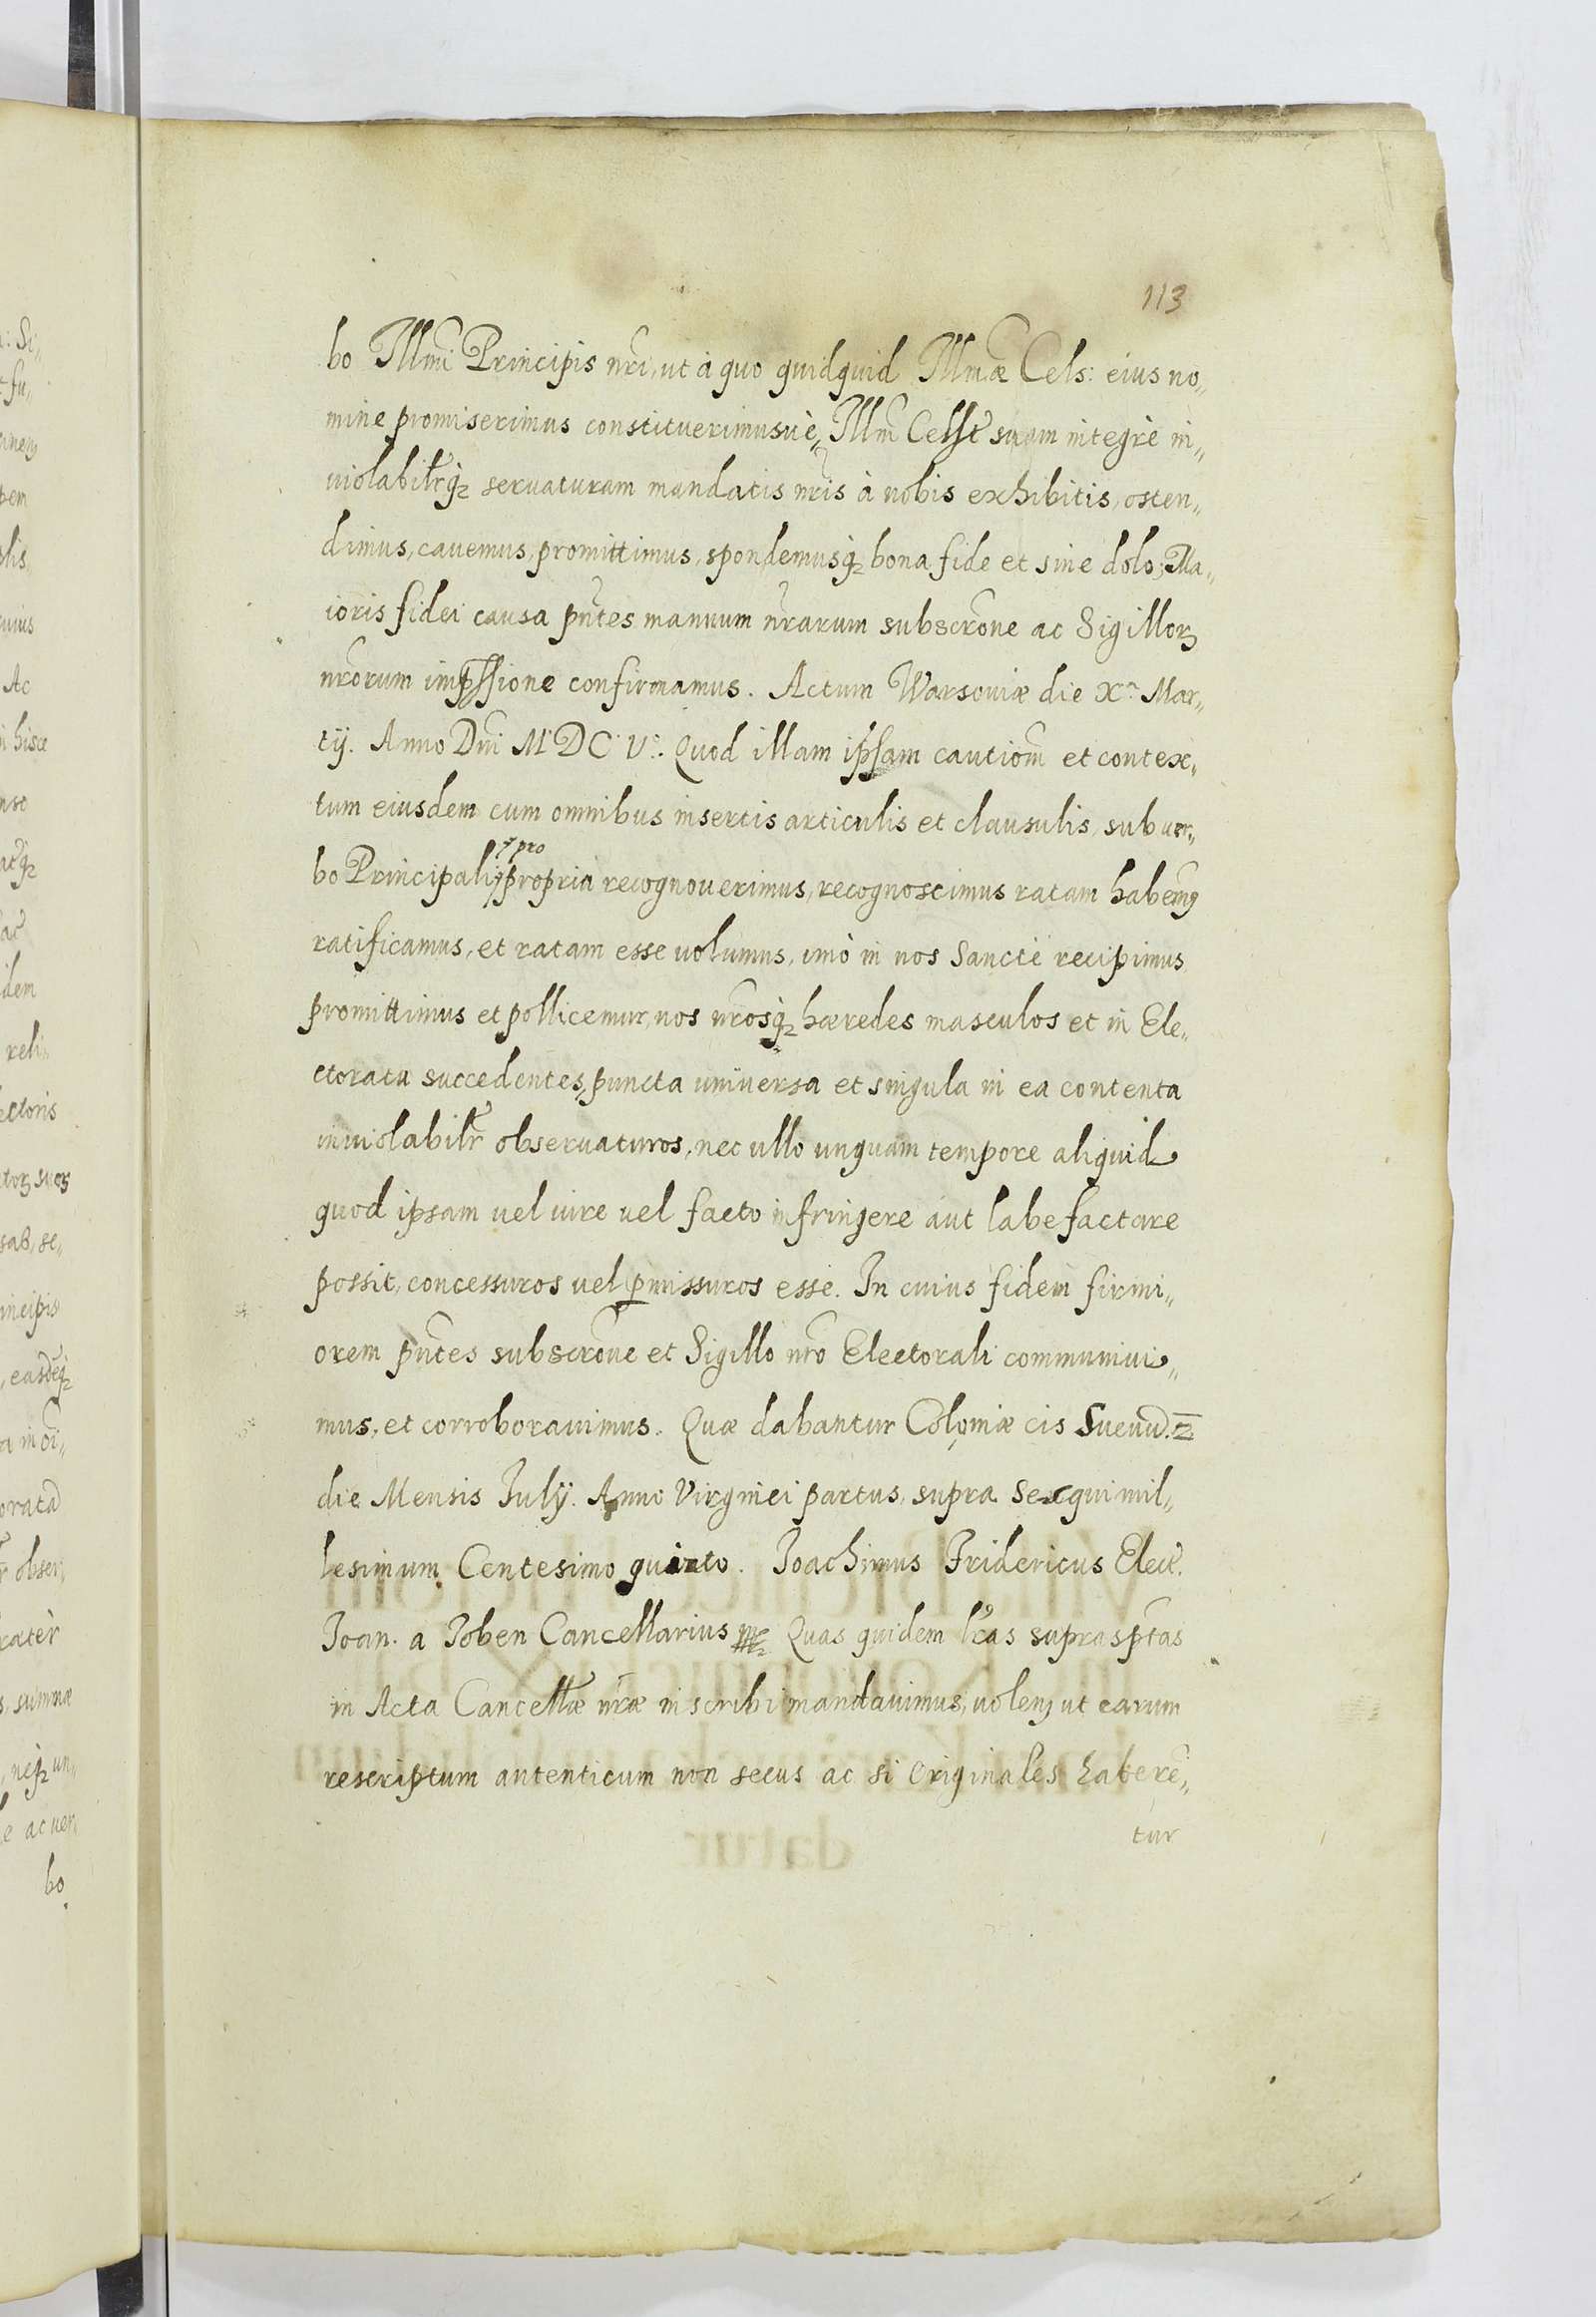 113
bo Illmi Principis nri, ut à quo quidquid Illmæ Cels: eius no„
mine promiserimus constituerimusuè, Illm Cellst suam integrè in„
uiolabilrq₃ seruaturam mandatis nris à nobis exhibitis, osten„
dimus, cauemus, promittimus, spondemusq₃ bona fide et sine dolo; Ma„
ioris fidei causa pntes manuum nrarum subscrone ac Sigillorꝫ
nrorum impssione confirmamus. Actum Warsouiæ die Xa Mar„
tij. Anno Dni M DC V°. Quod illam ipsam cautiom et contex„
tum eiusdem cum omnibus insertis articulis et clausulis, sub uer„
pro
bo Principali propria recognouerimus, recognoscimus ratam habemꝰ
ratificamus, et ratam esse uolumus, imò in nos Sanctè recipimus
promittimus et pollicemur, nos nrosq₃ hæredes masculos et in Ele„
ctoratu succedentes, puncta uniuersa et singula in ea contenta
inuiolabilr obseruaturos, nec ullo unquam tempore aliquid
quod ipsam uel iure uel facto infringere aut labefactare
possit, concessuros uel ꝑmissuros esse. In cuius fidem firmi„
orem pntes subscrone et Sigillo nro Electorali communiui„
mus, et corroborauimus. Quæ dabantur Coloniæ cis Sueuum. 2
die Mensis Julij. Anno Virginei partus, supra Sexquimil„
lesimum Centesimo quinto. Joachimus Fridericus Elect.
Joan. a Loben Cancellarius Quas quidem lras suprasptas
in Acta Cancellæ nræ inscribi mandauimus, uolenꝫ ut earum
rescriptum autenticum non secus ac si Originales haberen„
tur